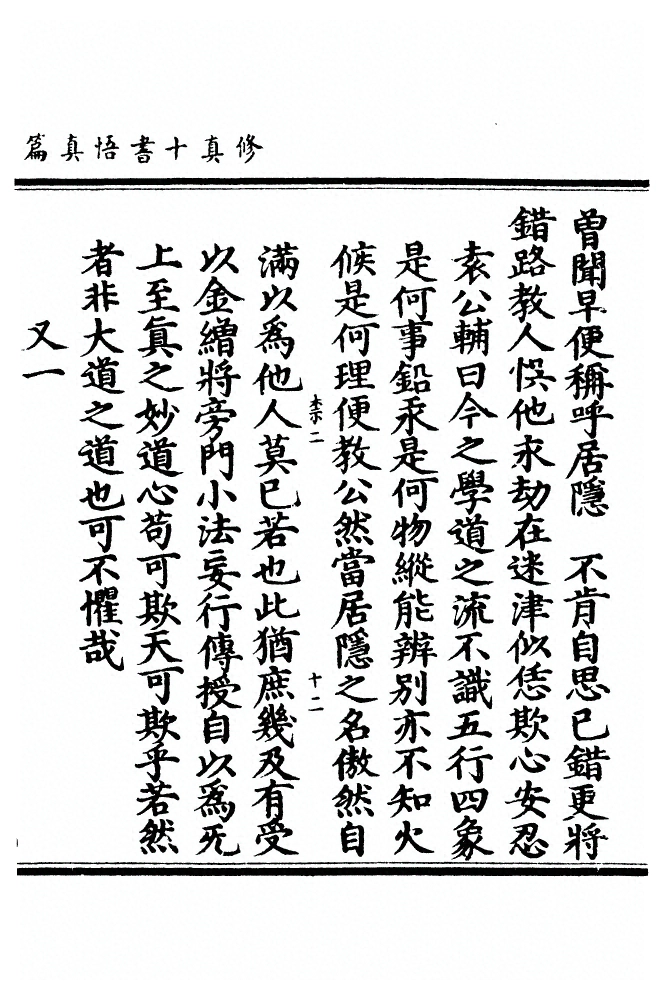 修真十書悟真篇
曾聞早便稱呼居隱　不肯自思已錯更將
錯路教人悞他永劫在迷津似恁欺心安忍
袁公輔曰今之學道之流不識五行四象
是何事鉛汞是何物縱能辨别亦不知火
候是何理便教公然當居隱之名傲然自
柰二　十二
滿以爲他人莫已若也此猶庶幾及有受
以金繒將旁門小法妄行傳授自以爲旡
上至眞之妙道心苟可欺天可欺乎若然
者非大道之道也可不懼哉
又一